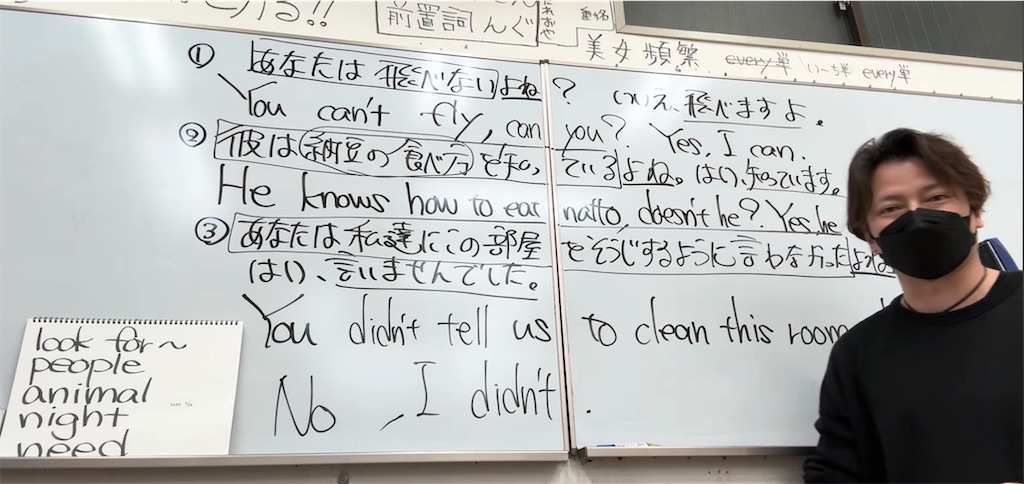 前置詞 んぐ
美女頻繁 every単 い〜ち単 every単
① あなたは飛べないよね? いいえ、飛べますよ。
You can't fly, can you? Yes, I can.
② 彼は納豆の食べ方を知っているよね。はい、知っています。
He knows how to eat natto, doesn't he? Yes, he
③ あなたは私達にこの部屋をそうじするように言わなかったよね
はい、言いませんでした。
You didn't tell us to clean this room
No, I didn't.
look for~
people
animal
night
need